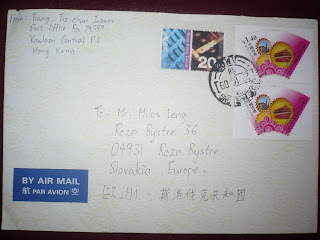 From: Tsang, Tsz
Post Office Box
Kowloon Central P.O
Hong Kong
20
$1.40
To: Mr. Milos Leng
Rozn. Bystre 86
04931 Rozn. Bystre
Slovakia, Europe.
歐洲 斯洛伐克共和國
BY AIR MAIL
航 PAR AVION 空